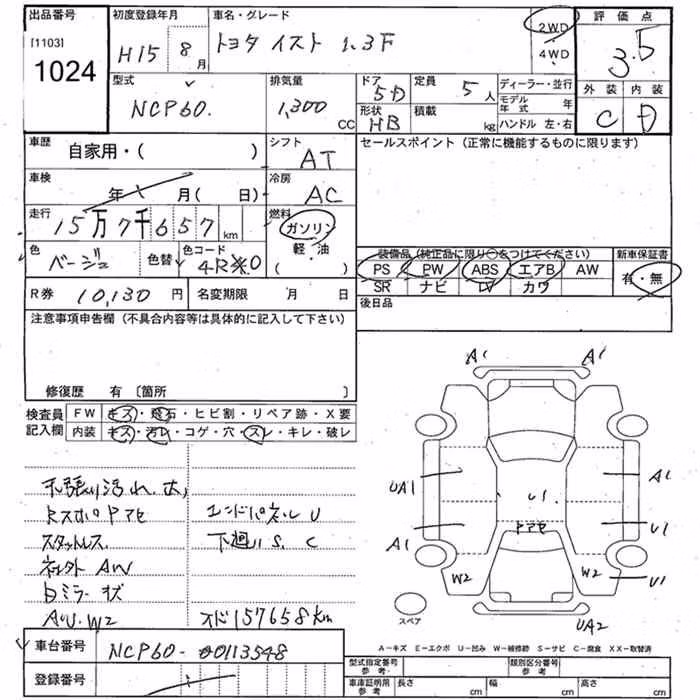 出品番号
[1103]
1024
初度登録年月
H15 8 月
車名・グレード
トヨタ イスト 1.3F
2WD
4WD
評価点
3.5
外装 内装
C D
型式
NCP60.
排気量
1,300 CC
ドア 5D
形状 HB
定員 5 人
積載 kg
ディーラー・並行
モデル年式 年
ハンドル 左・右
車歴
自家用・( )
シフト
AT
車検
年 月(日)
冷房
AC
走行
15万7千657 km
燃料
ガソリン
軽・油
( )
色
ベージュ
色替
色コード
4R※0
R券 10,130 円
名変期限 月 日
注意事項申告欄 (不具合内容等は具体的に記入して下さい)
修復歴 有 〔箇所 〕
セールスポイント (正常に機能するものに限ります)
装備品 (純正品に限り○をつけてください)
PS PW ABS エアB AW
SR ナビ LV カワ
新車保証書
有・無
後日品
検査員記入欄
FW キズ・飛石・ヒビ割・リペア跡・X要
内装 キズ・汚レ・コゲ・穴・スレ・キレ・破レ
天張り汚れ.
トスポドアセ
エンドパネルU
スタットレス
下廻りS.C
社外AW
ミラー
AU.W2
157658km
車台番号
NCP60-0113548
登録番号
A1 A1
UA1 A1
U1
ドアセ
A1 U1
W2 W2 U1
スペア
UA2
A-キズ E-エクボ U-凹み W-補修跡 S-サビ C-腐食 XX-取替済
型式指定番号 参考
類別区分番号 参考
車庫証明用 参考
長さ cm
幅 cm
高さ cm